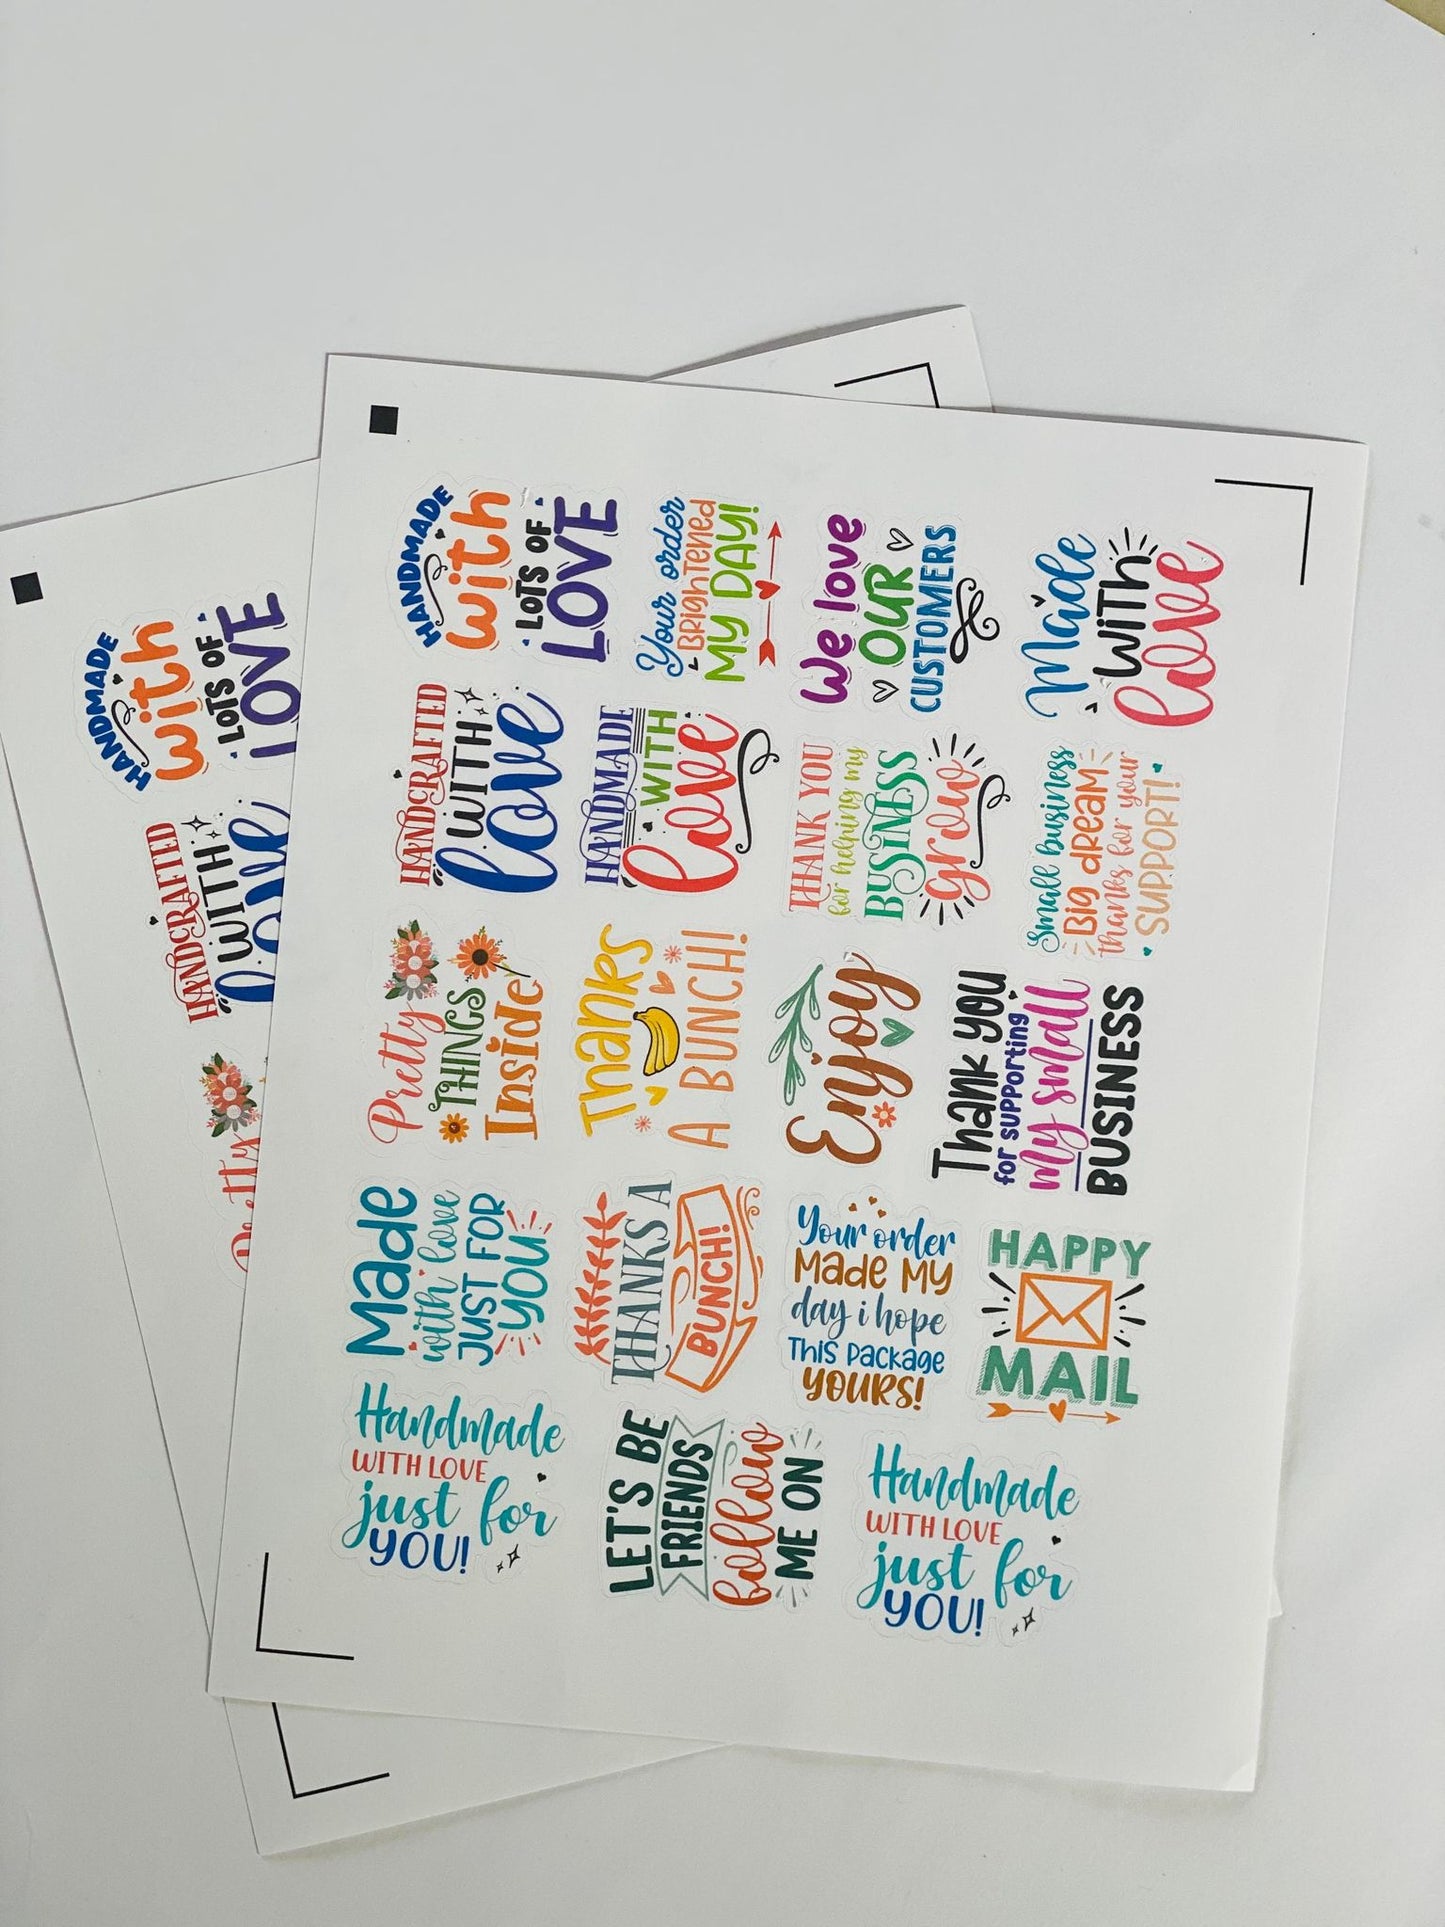 HANDMADE
with
LOTS OF
LOVE
Your order
BRIGHTENED
MY DAY!
We love
OUR
CUSTOMERS
Made
WITH
love
HANDCRAFTED
WITH
love
HANDMADE
WITH
love
THANK YOU
for helping my
BUSINESS
grow
Small business
BIG DREAM
thanks for your
SUPPORT!
Pretty
THINGS
Inside
Thanks
A BUNCH!
Enjoy
Thank you
for supporting
my small
BUSINESS
Made
with love
JUST FOR
YOU
THANKS A
BUNCH!
Your order
Made My
day i hope
This Package
YOURS!
HAPPY
MAIL
Handmade
WITH LOVE
just for
YOU!
LET'S BE
FRIENDS
follow
ME ON
Handmade
WITH LOVE
just for
YOU!
HANDMADE
with
LOTS OF
LOVE
HANDCRAFTED
WITH
love
Pretty